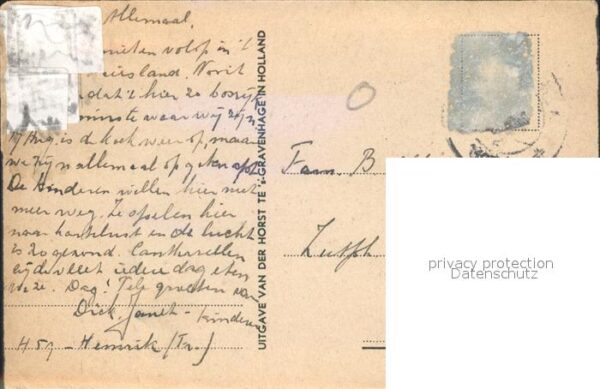 Allemaal,
nieten volop in 't
iesland. Nooit
dat 't hier zo bosrijk
minste waar wij zijn
is de kook weer op, maar
we zijn allemaal opgeknapt.
De Kinderen willen hier niet
meer weg. Ze spelen hier
naar hartelust en de lucht
is zo gezond. Cantharellen
iedere dag eten
we ze. Dag! groeten van
Dick, Janet - Kinderen
H 59 - Hemrik (Fr.)
UITGAVE VAN DER HORST TE 's-GRAVENHAGE IN HOLLAND
Fam B
Zutph
privacy protection
Datenschutz